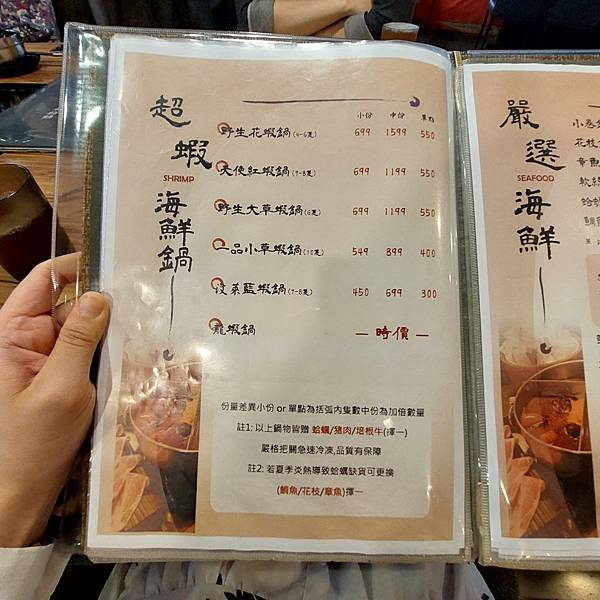 超蝦
SHRIMP
海鮮鍋
小份 中份 單點
野生花蝦鍋(4-6隻) 699 1599 550
天使紅蝦鍋(7-8隻) 699 1199 550
野生大草蝦鍋(6隻) 699 1199 550
一品小草蝦鍋(10隻) 549 899 400
汶萊藍蝦鍋(7-8隻) 450 699 300
龍蝦鍋 — 時價 —
份量差異小份 or 單點為括弧內隻數中份為加倍數量
註1: 以上鍋物皆贈 蛤蠣/豬肉/培根牛(擇一)
嚴格把關急速冷凍,品質有保障
註2: 若夏季炎熱導致蛤蠣缺貨可更換
(鯛魚/花枝/章魚)擇一
嚴選
SEAFOOD
海鮮
小卷
花枝
章魚
軟絲